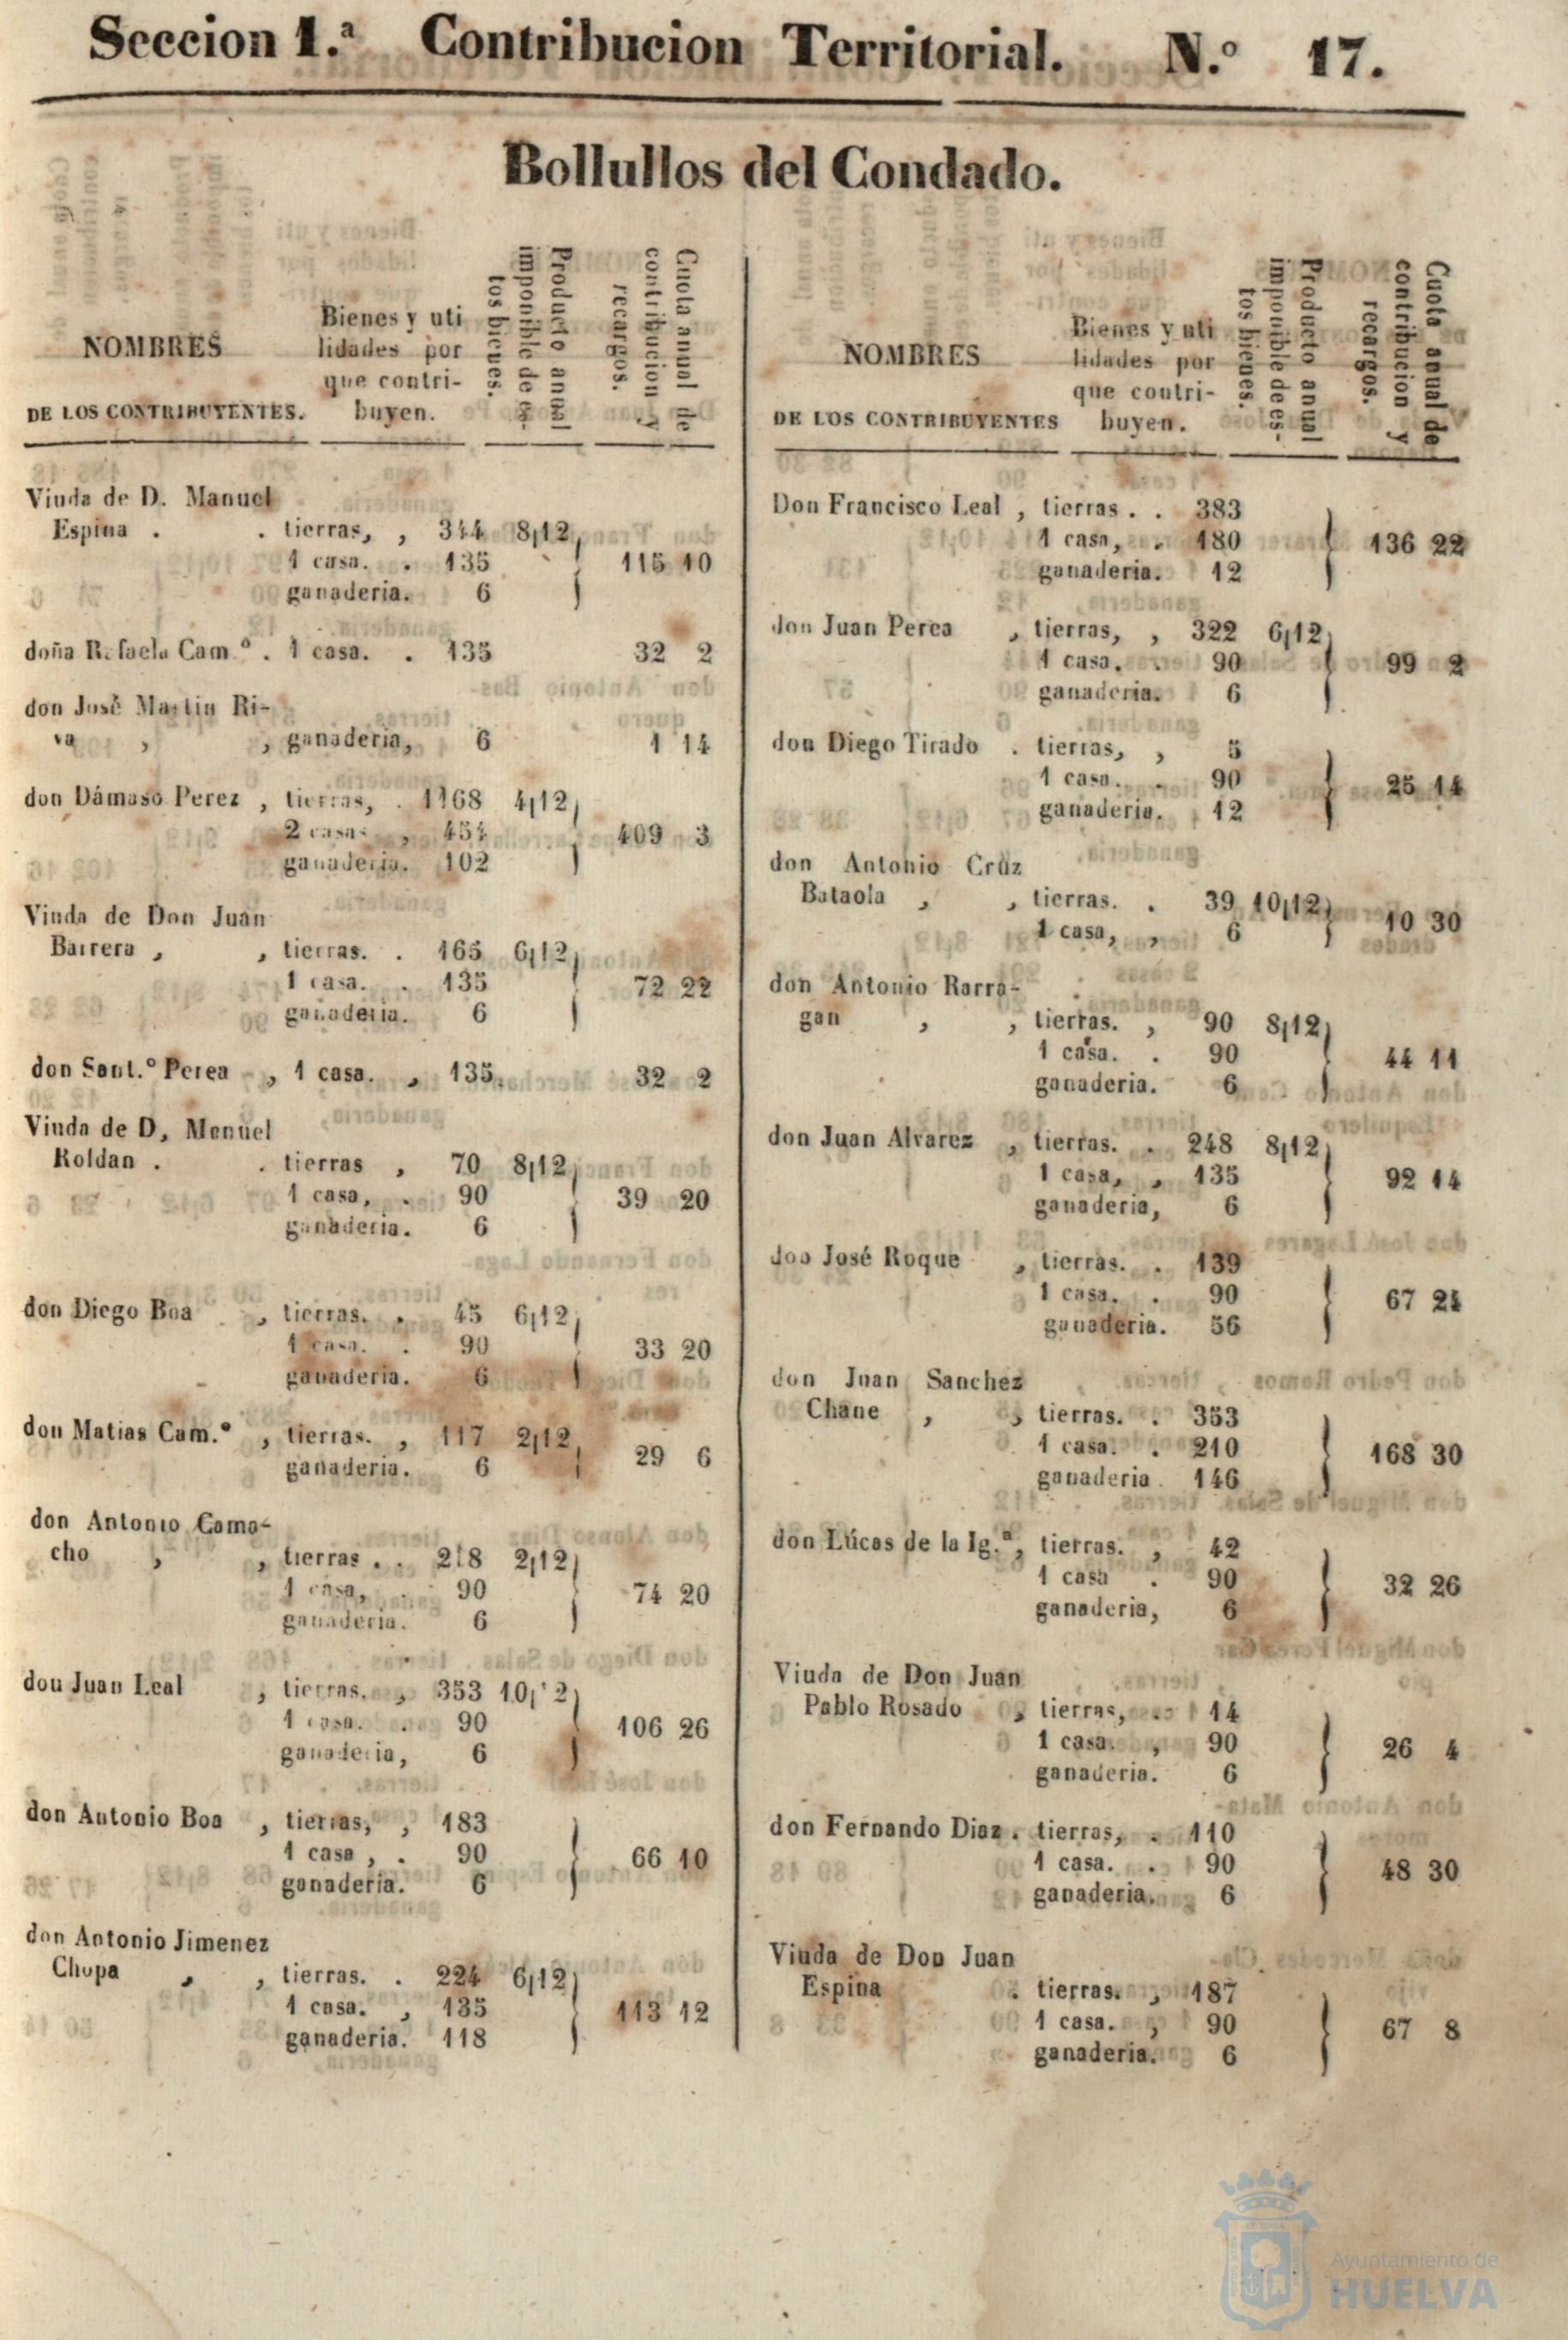 Seccion 1.ª Contribucion Territorial. N.º 17.
Bollullos del Condado.
NOMBRES
DE LOS CONTRIBUYENTES.
Bienes y uti
lidades por
que contri-
buyen.
Producto anual
imponible de es-
tos bienes.
Cuota anual de
contribucion y
recargos.
Viuda de D. Manuel
Espina . . tierras, , 344 8,12
1 casa. . 135 115 10
ganaderia. 6
doña Rafaela Cam.º . 1 casa. . 135 32 2
don José Martin Ri-
va , , ganaderia, 6 1 14
don Dámaso Perez , tierras, . 1168 4,12
2 casas , 454 409 3
ganaderia. 102
Viuda de Don Juan
Barrera , , tierras. . 165 6,12
1 casa. . 135 72 22
ganaderia. 6
don Sant.º Perea , 1 casa. , 135. 32 2
Viuda de D, Manuel
Roldan . . tierras , 70 8,12
1 casa, . 90 39 20
ganaderia. 6
don Diego Boa , tierras. . 45 6,12
1 casa. . 90 33 20
ganaderia. 6
don Matias Cam.º , tierras. , 117 2,12
ganaderia. 6 29 6
don Antonio Cama-
cho , , tierras . . 218 2,12
1 casa, . 90 74 20
ganaderia. 6
don Juan Leal , tierras. , 353 10,12
1 casa. . 90 106 26
ganaderia, 6
don Antonio Boa , tierras, , 183
1 casa , . 90 66 10
ganaderia. 6
don Antonio Jimenez
Chopa , , tierras. . 224 6,12
1 casa. , 135 113 12
ganaderia. 118
NOMBRES
DE LOS CONTRIBUYENTES
Bienes y uti
lidades por
que contri-
buyen.
Producto anual
imponible de es-
tos bienes.
Cuota anual de
contribucion y
recargos.
Don Francisco Leal , tierras . . 383
1 casa, . 180 136 22
ganaderia. 12
don Juan Perea , tierras, , 322 6,12
1 casa. . 90 99 2
ganaderia. 6
don Diego Tirado . tierras, , 5
1 casa. . 90 25 14
ganaderia. 12
don Antonio Cruz
Bataola , , tierras. . 39 10,12
1 casa, , 6 10 30
don Antonio Rarra-
gan , , tierras. , 90 8,12
1 casa. . 90 44 11
ganaderia. 6
don Juan Alvarez , tierras. . 248 8,12
1 casa, , 135 92 14
ganaderia, 6
don José Roque , tierras. . 139
1 casa. . 90 67 24
ganaderia. 56
don Juan Sanchez
Chane , , tierras. . 353
1 casa. . 210 168 30
ganaderia . 146
don Lúcas de la Ig.ª, tierras. , 42
1 casa . 90 32 26
ganaderia, 6
Viuda de Don Juan
Pablo Rosado , tierras, . 14
1 casa. , 90 26 4
ganaderia. 6
don Fernando Diaz . tierras, . 110
1 casa. . 90 48 30
ganaderia. 6
Viuda de Don Juan
Espina . tierras. , 187
1 casa. , 90 67 8
ganaderia. 6
Ayuntamiento de
HUELVA